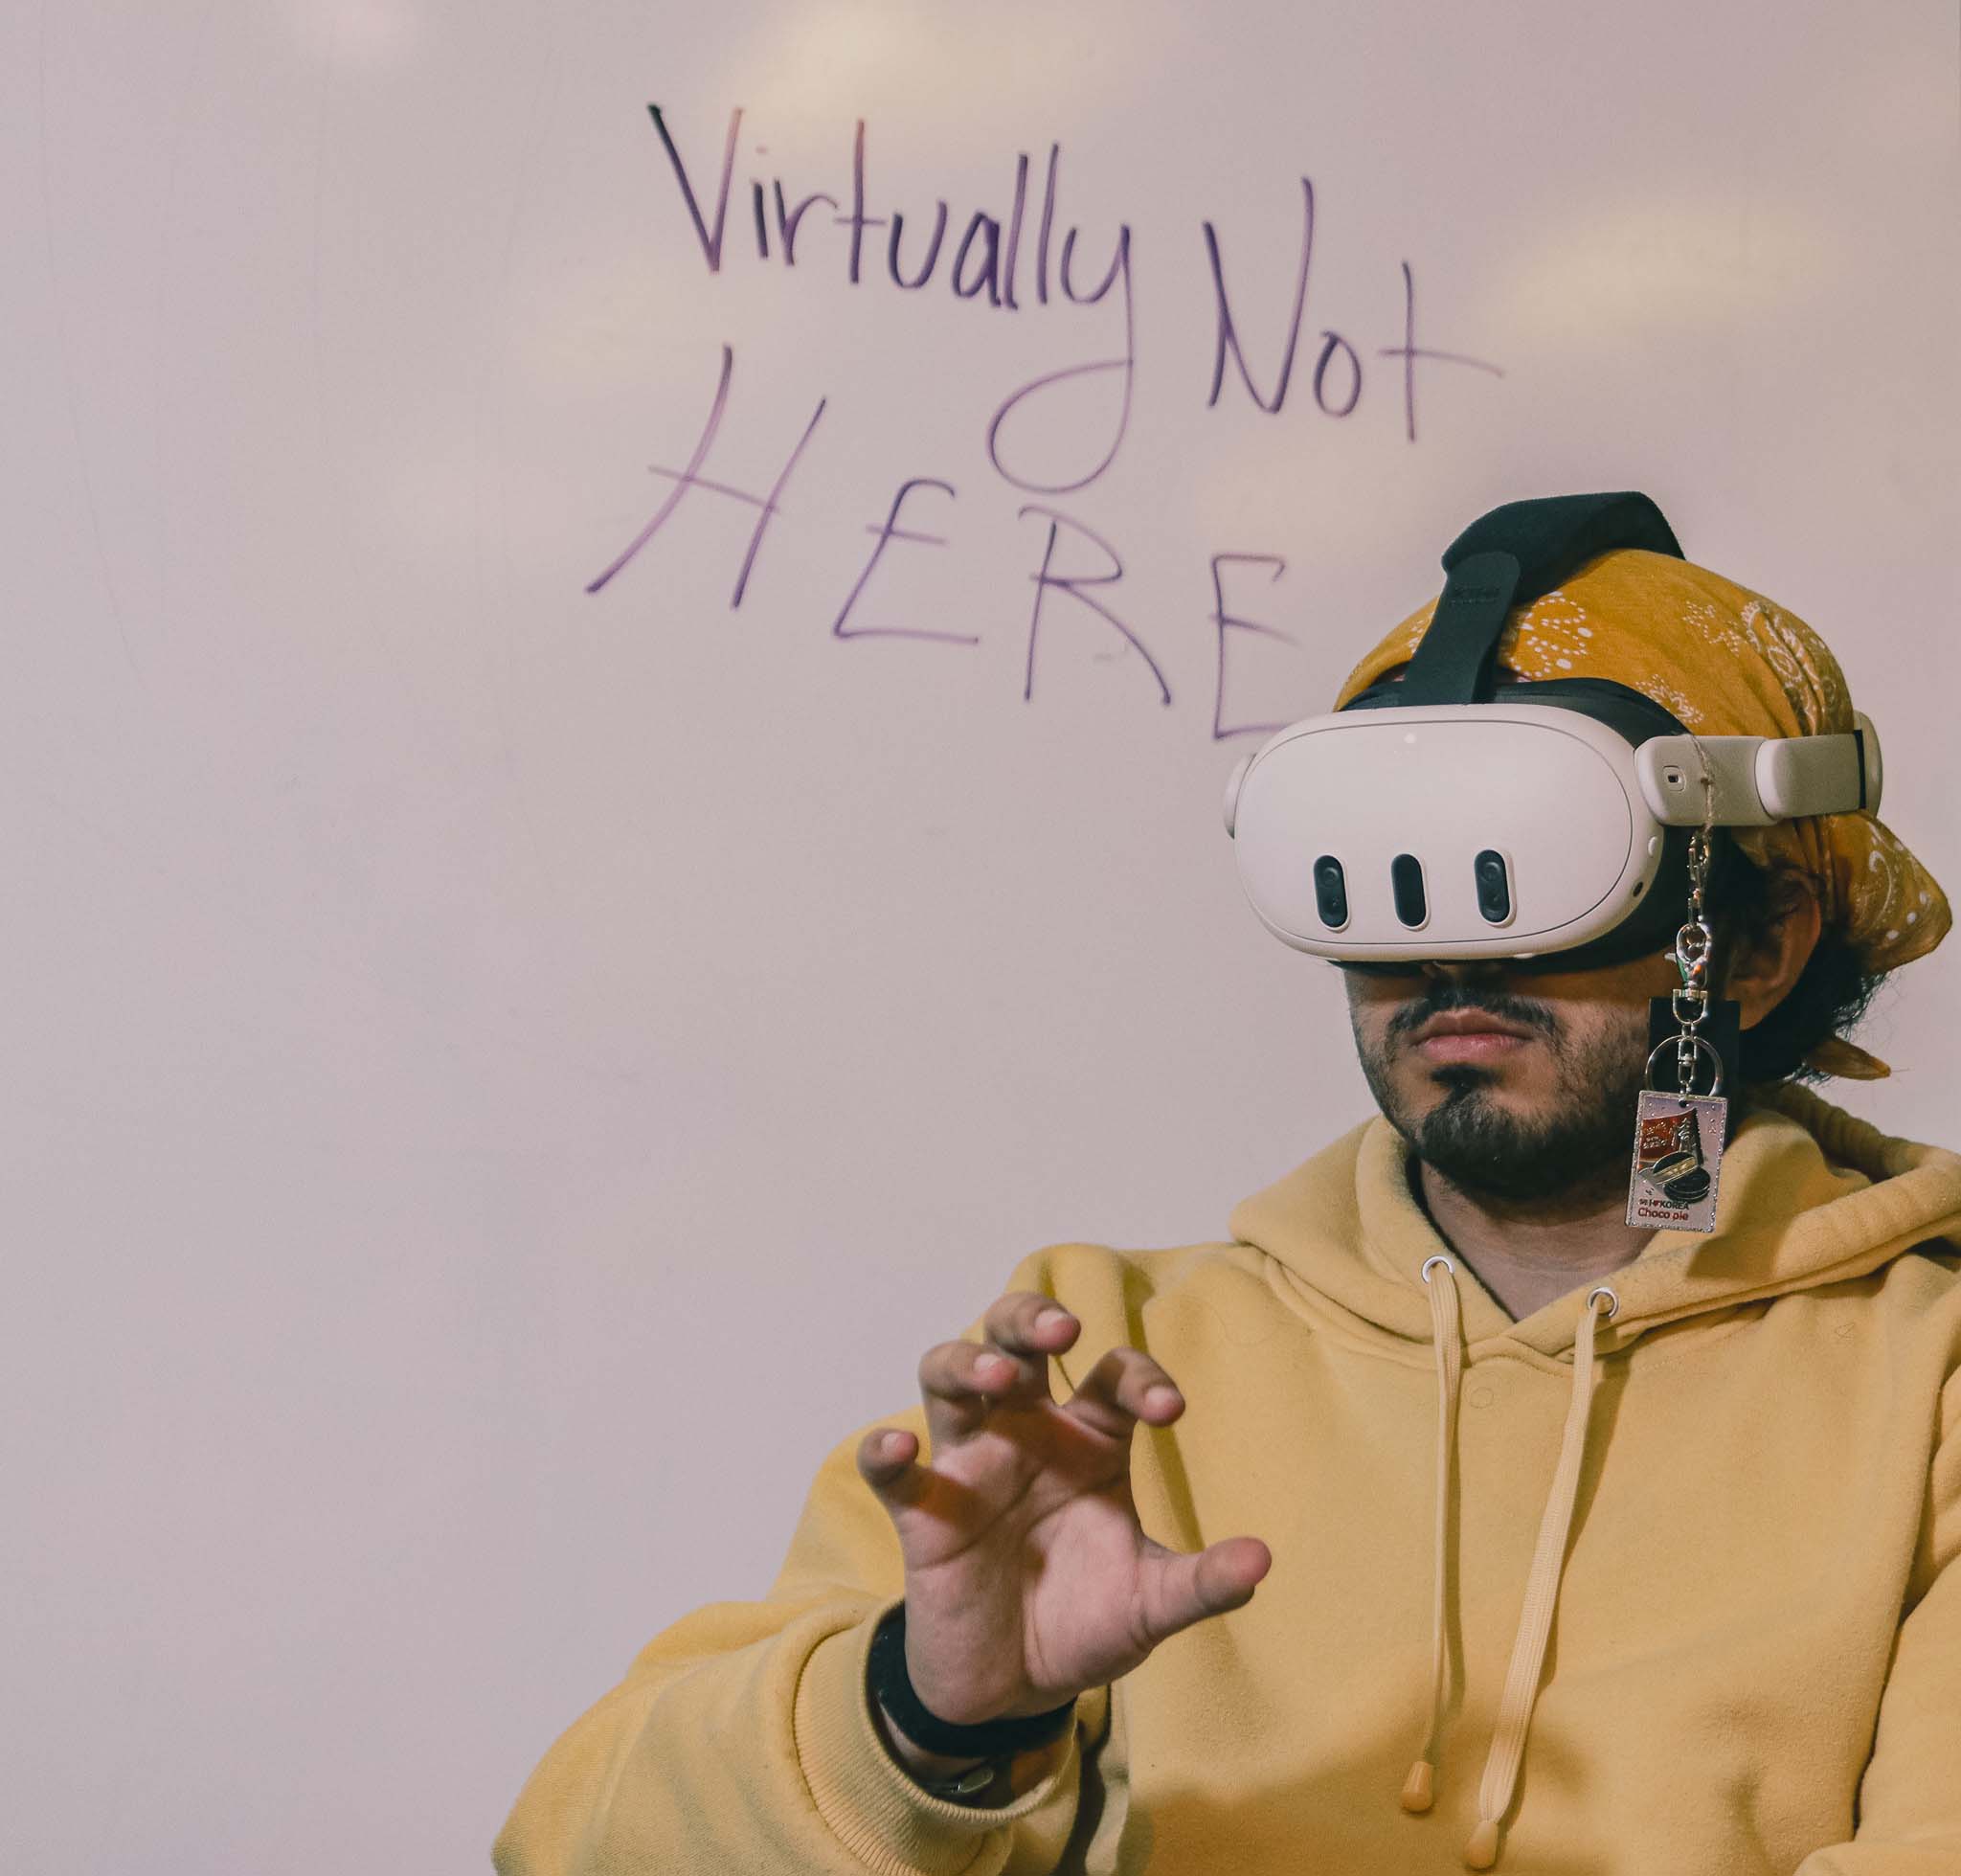 Virtually Not
HERE
KOREA
Choco pie